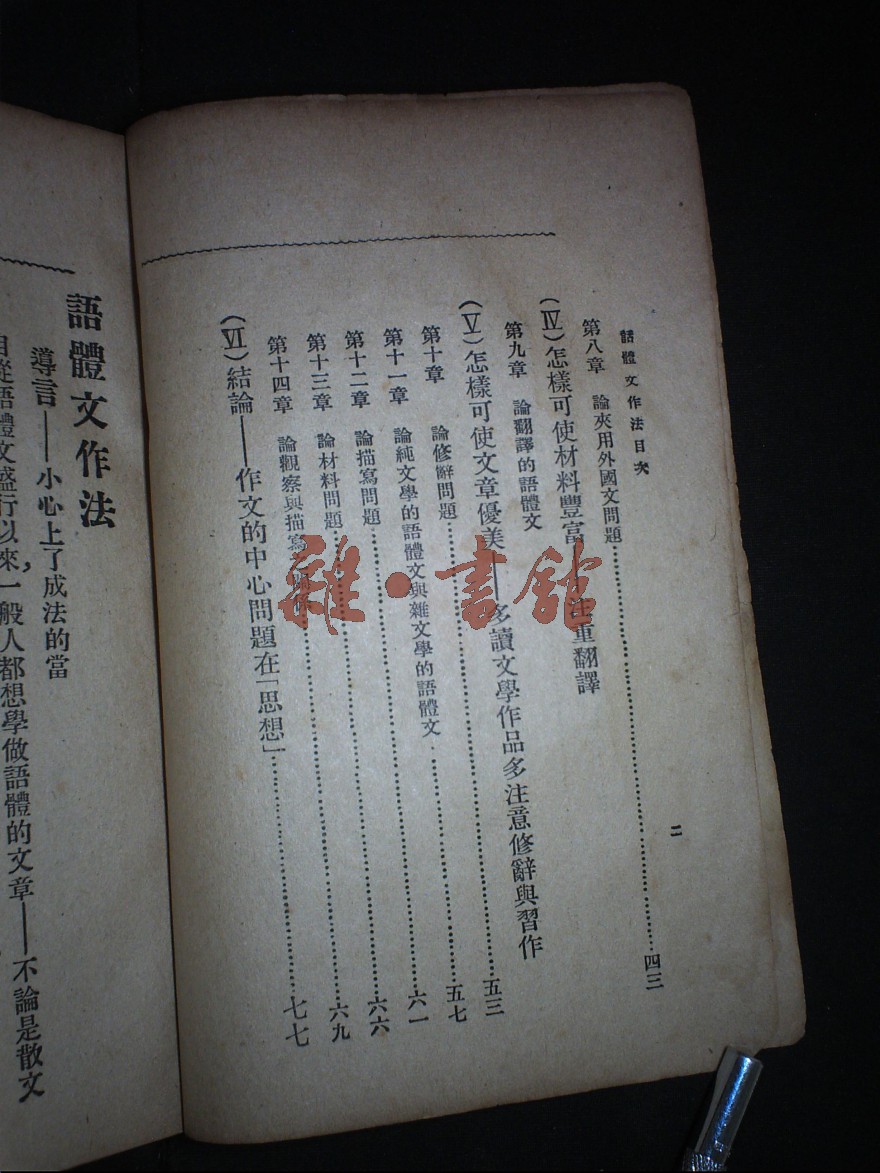 話體文作法目次
二
第八章 論夾用外國文問題……四三
(Ⅳ)怎樣可使材料豐富——注重翻譯
第九章 論翻譯的語體文
(Ⅴ)怎樣可使文章優美——多讀文學作品多注意修辭與習作
第十章 論修辭問題……五三
第十一章 論純文學的語體文與雜文學的語體文……五七
第十二章 論描寫問題……六一
第十三章 論材料問題……六六
第十四章 論觀察與描寫……六九
(Ⅵ)結論——作文的中心問題在「思想」……七七
語體文作法
導言——小心上了成法的當
自從語體文盛行以來，一般人都想學做語體的文章——不論是散文
雜·書館